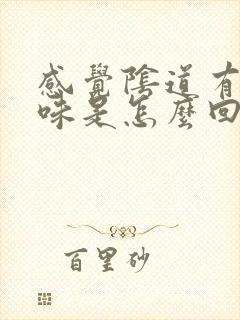 感覺陰道有
味是怎麼回
百里砂